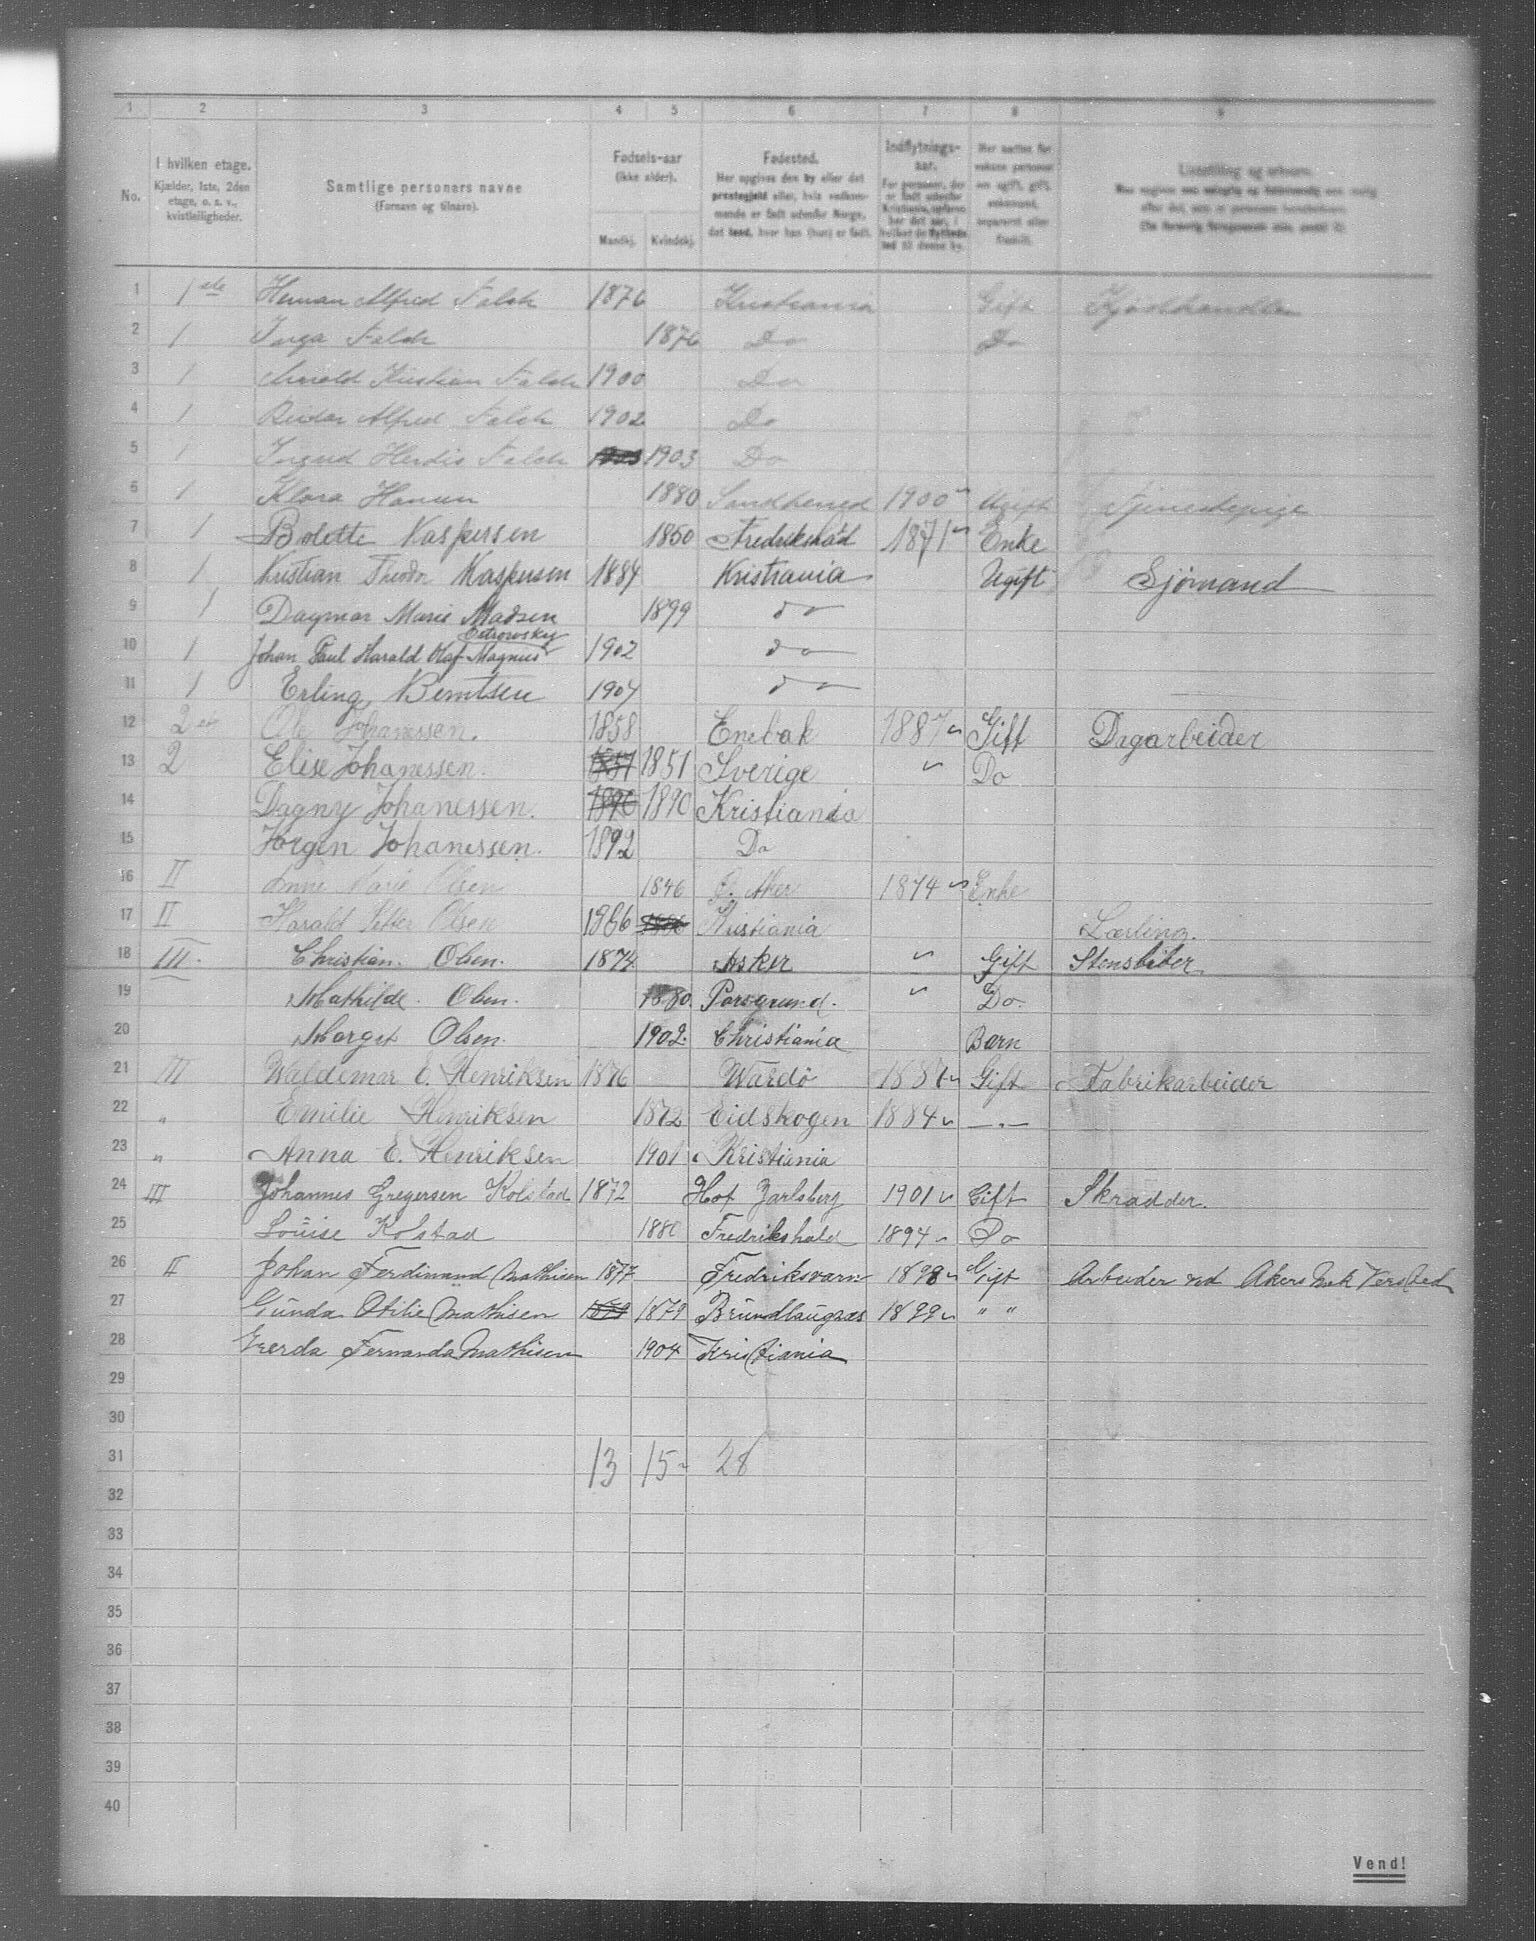 1 2 3 4 5 6 7 8 9
No.
I hvilken etage.
Kjælder, 1ste, 2den
etage, o. s. v.,
kvistleiligheder.
Samtlige personers navne
(Fornavn og tilnavn).
Fødsels-aar
(ikke alder).
Mandkj. Kvindekj.
Fødested.
Her opgives den by eller det
prestegjeld eller, hvis vedkom-
mende er født udenfor Norge,
det land, hvor han (hun) er født.
Indflytnings-
aar.
For personer, der
er født udenfor
Kristiania, opføres
her det aar, i
hvilket de flyttede
ind til denne by.
Livsstilling og erhverv.
1 1ste Herman Alfred Falch 1876 Kristiania Gift
2 1 Inga Falch 1876 Do Do
3 1 Kristian Falch 1900 Do
4 1 Reidar Alfred Falch 1902 Do
5 1 Herdis Falch 1903 Do
6 1 Klara Hansen 1880 1900 Ugift Tjenestepige
7 1 Bolette Kaspersen 1850 Fredrikstad 1871 Enke
8 1 Kristian Theodor Kaspersen 1884 Kristiania Ugift Sjømand
9 1 Dagmar Marie Madsen 1899 do
Petrowsky
10 1 Johan Paul Harald Olaf Magnus 1902 do
11 1 Erling Berntsen 1904 do
12 2 Ole Johanessen. 1858 Enebak 1887 Gift Dagarbeider
13 2 Elise Johanessen. 1851 1851 Sverige Do
14 Dagny Johanessen. 1890 1890 Kristiania
15 Jørgen Johanessen. 1892 Do
16 II Anne Marie Olsen 1846 Ø. Aker 1874 Enke
17 II Harald Peter Olsen 1886 Kristiania Lærling.
18 III. Christian. Olsen. 1874 Asker Gift Stensliber
19 Mathilde. Olsen. 1880. Porsgrund. Do.
20 Margit Olsen. 1902. Christiania Barn
21 III Waldemar E. Henriksen 1876 Wardö Gift Fabrikarbeider
22 " Emilie Henriksen 1872 Eidskogen 1884 —"—
23 " Anna E. Henriksen 1901 Kristiania
24 III Johannes Gregersen Kolstad 1872 Hof Jarlsberg 1901 Gift Skradder.
25 Louise Kolstad 1880 Fredrikshald 1894 Do
26 II Johan Ferdinand Mathisen 1877 Fredriksvarn 1898 Gift Arbeider ved Akers Mek Versted
27 Gunda Otilie Mathisen 1879 1879 Brundlaugnæs 1899 " "
28 Gerda Fernanda Mathisen 1904 Kristiania
29
30
31 13 15 28
32
33
34
35
36
37
38
39
40
Vend!